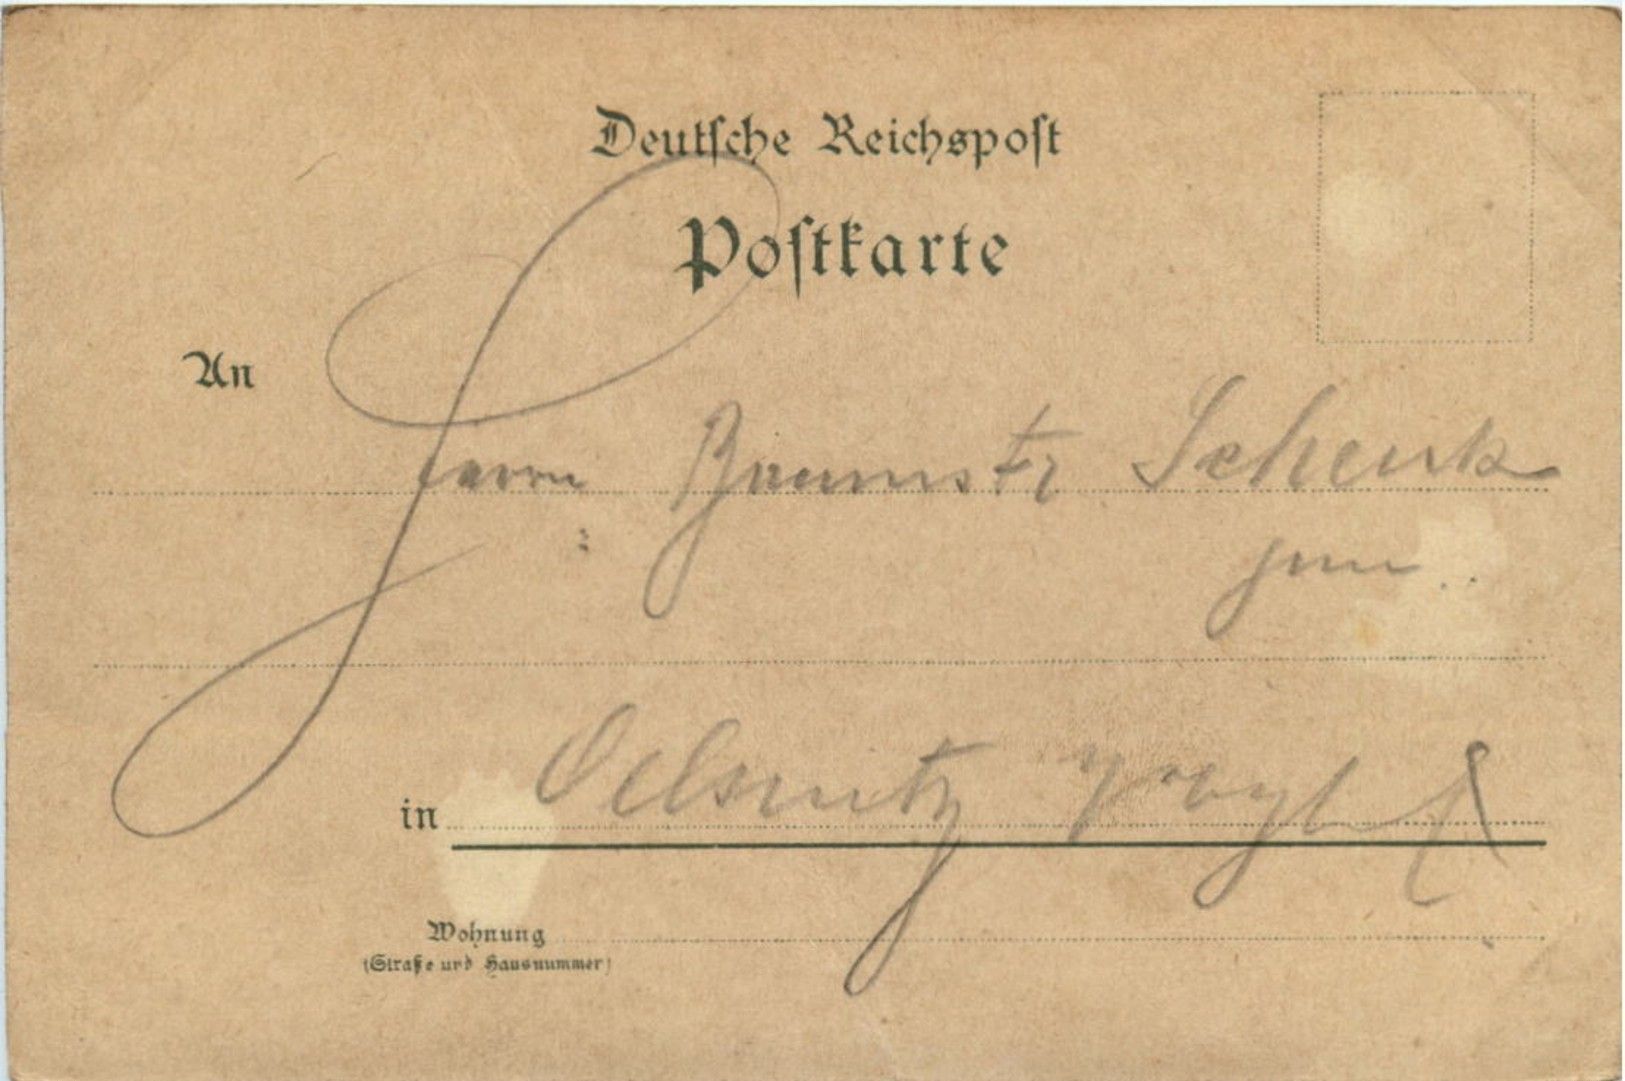 Deutsche Reichspost
Postkarte
An
Herrn Baumstr Schenk
jun..
in Oelsnitz Vogtl
Wohnung
(Straße und Hausnummer)